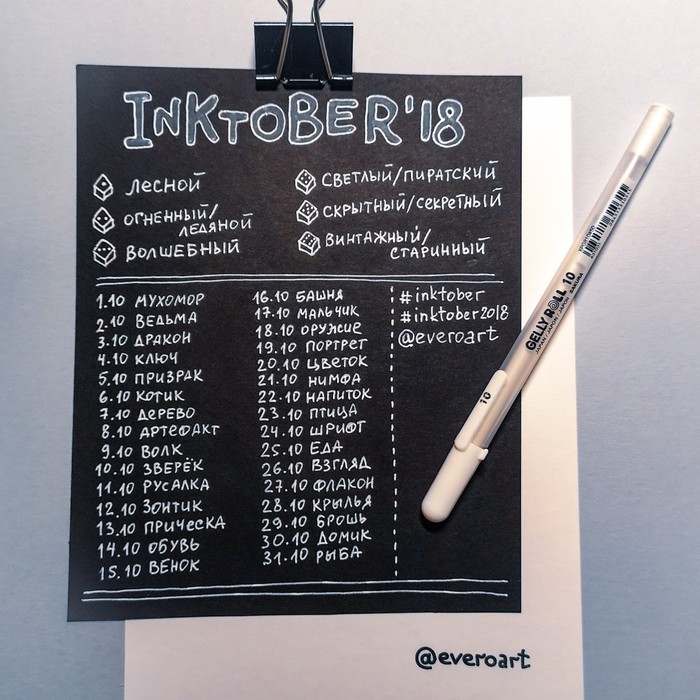 INKTOBER'18
ЛЕСНОЙ
ОГНЕННЫЙ/
ЛЕДЯНОЙ
ВОЛШЕБНЫЙ
СВЕТЛЫЙ/ПИРАТСКИЙ
СКРЫТНЫЙ/СЕКРЕТНЫЙ
ВИНТАЖНЫЙ/
СТАРИННЫЙ
1.10 МУХОМОР
2.10 ВЕДЬМА
3.10 ДРАКОН
4.10 КЛЮЧ
5.10 ПРИЗРАК
6.10 КОТИК
7.10 ДЕРЕВО
8.10 АРТЕФАКТ
9.10 ВОЛК
10.10 ЗВЕРЁК
11.10 РУСАЛКА
12.10 ЗОНТИК
13.10 ПРИЧЕСКА
14.10 ОБУВЬ
15.10 ВЕНОК
16.10 БАШНЯ
17.10 МАЛЬЧИК
18.10 ОРУЖИЕ
19.10 ПОРТРЕТ
20.10 ЦВЕТОК
21.10 НИМФА
22.10 НАПИТОК
23.10 ПТИЦА
24.10 ШРИФТ
25.10 ЕДА
26.10 ВЗГЛЯД
27.10 ФЛАКОН
28.10 КРЫЛЬЯ
29.10 БРОШЬ
30.10 ДОМИК
31.10 РЫБА
#inktober
#inktober2018
@everoart
GELLY ROLL 10
JAPAN / JAPON / JAPÓN SAKURA
10
@everoart